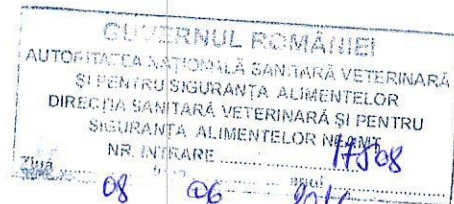 GUVERNUL ROMÂNIEI
AUTORITATEA NAȚIONALĂ SANITARĂ VETERINARĂ
ȘI PENTRU SIGURANȚA ALIMENTELOR
DIRECȚIA SANITARĂ VETERINARĂ ȘI PENTRU
SIGURANȚA ALIMENTELOR NEAMȚ
NR. INTRARE
Ziua anul
08 06